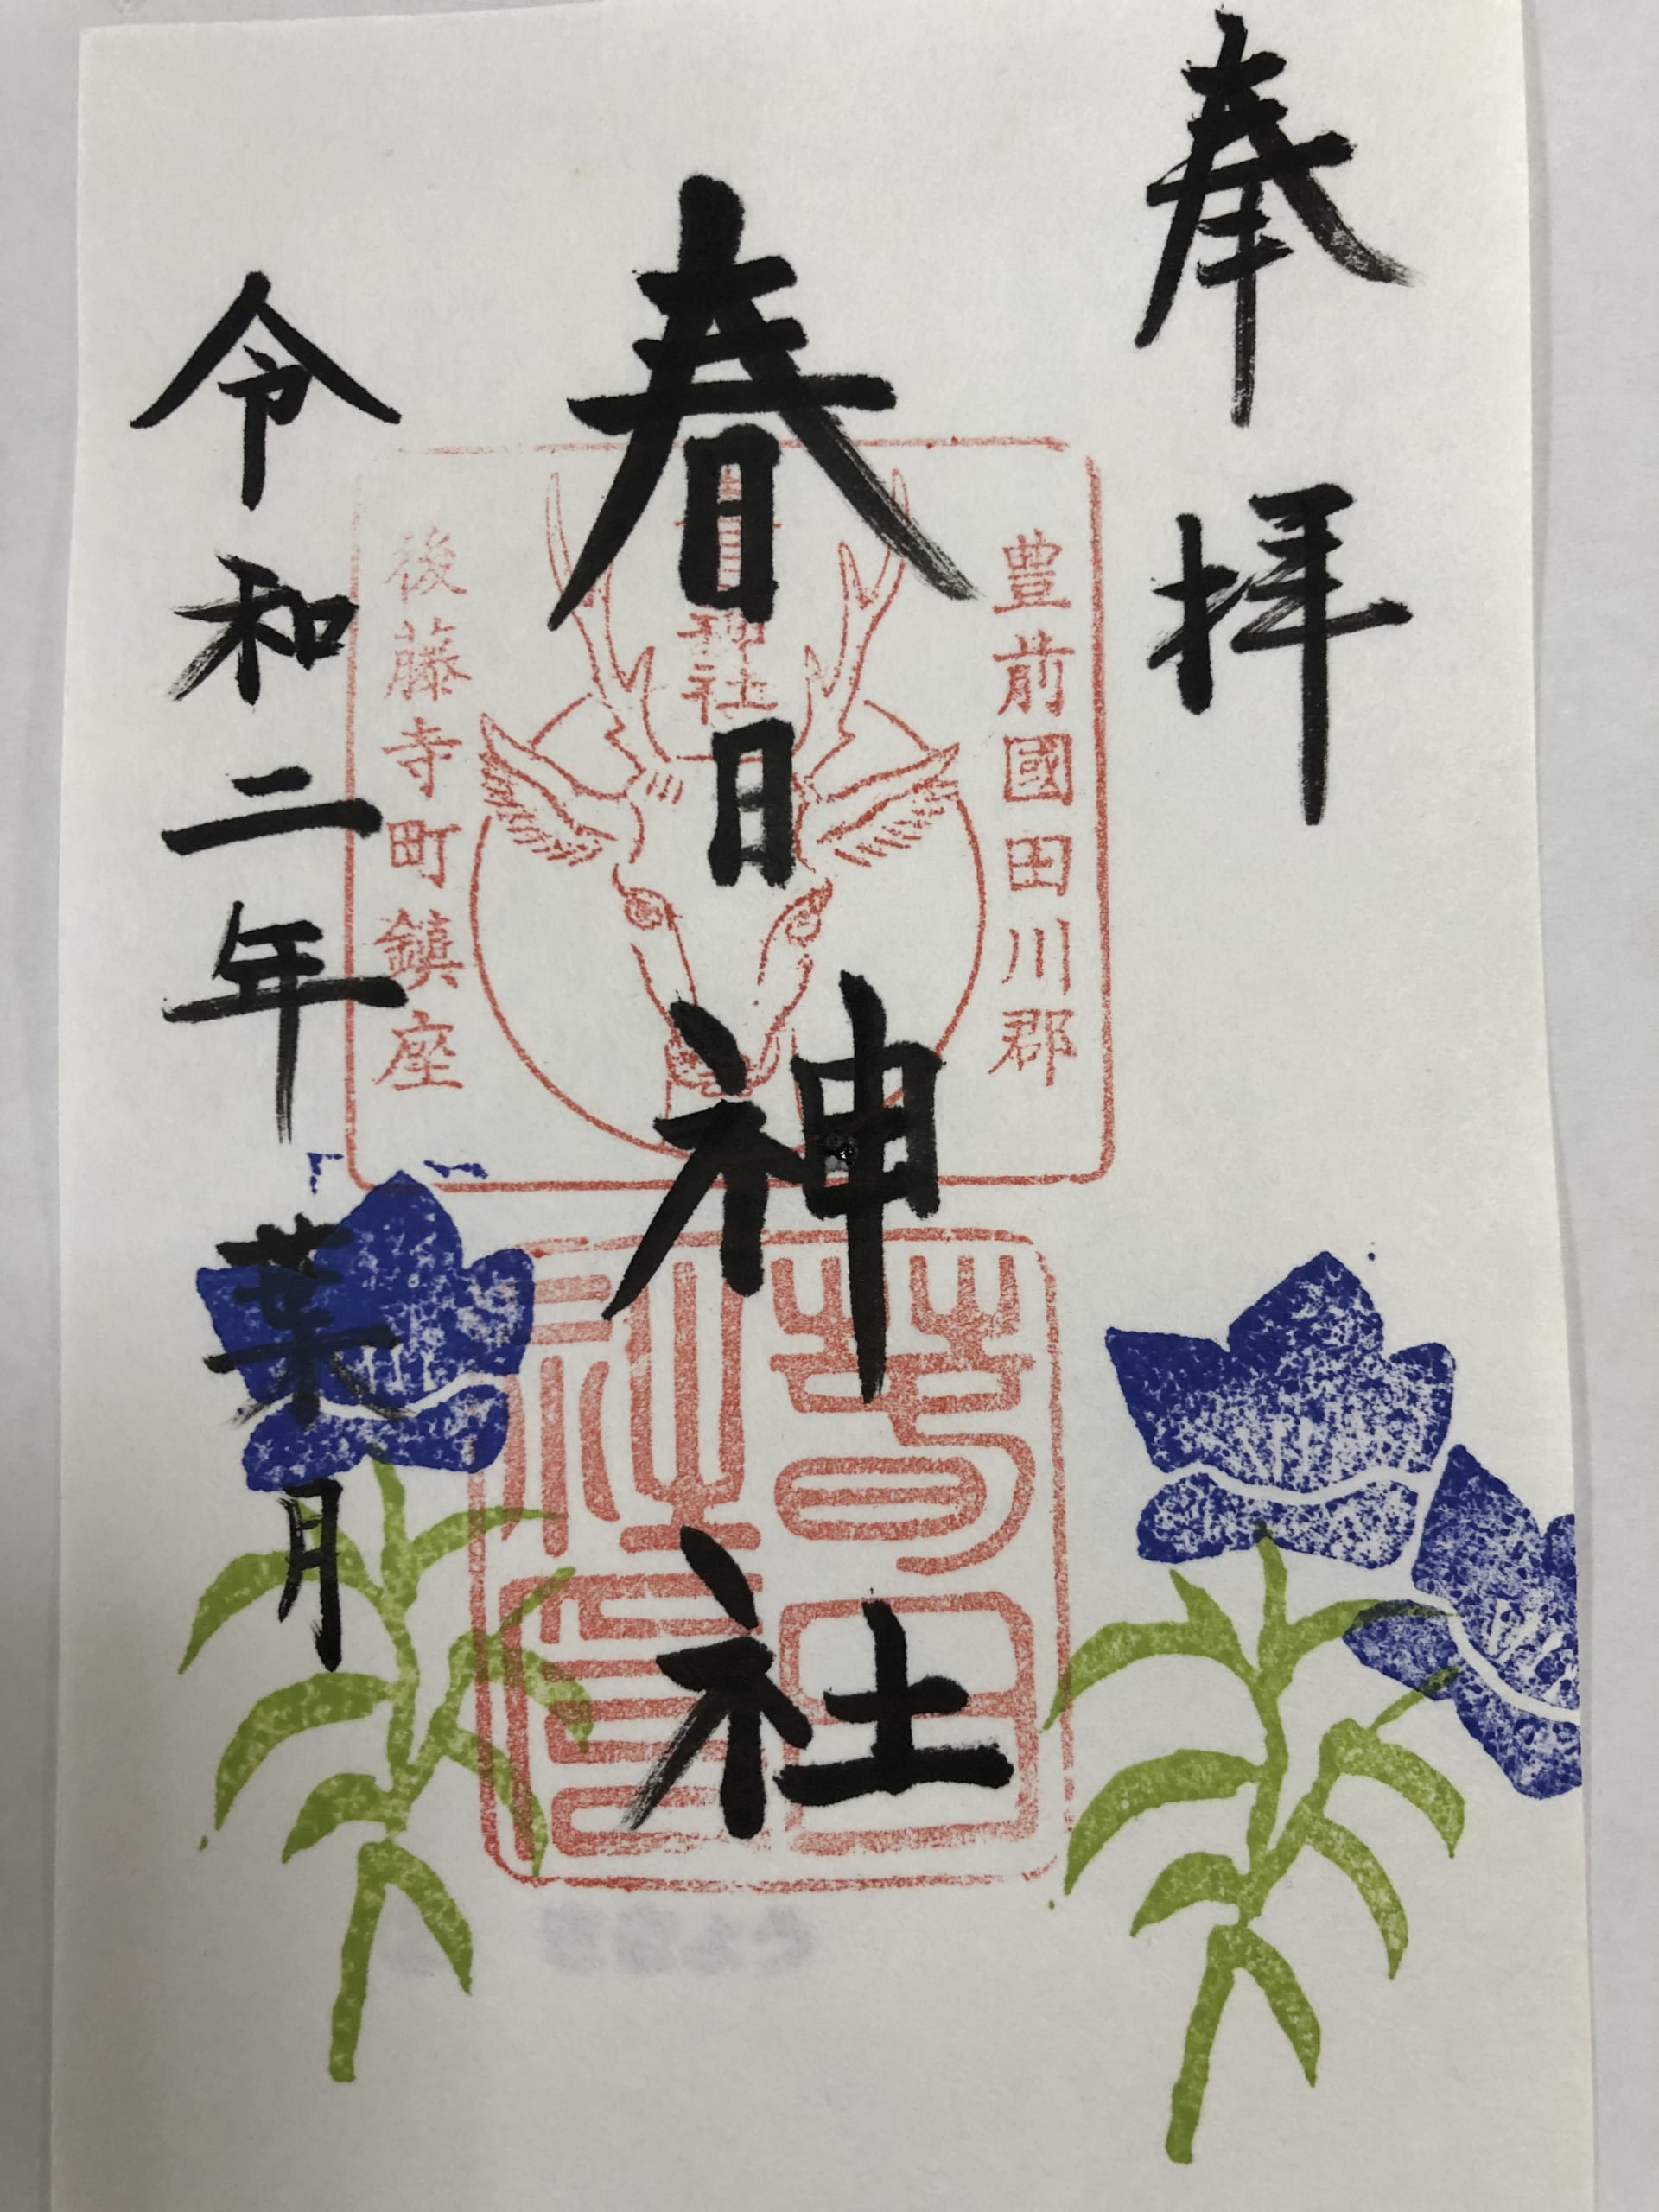 奉拝
豊前國田川郡
春日神社
神社
後藤寺町鎮座
令和二年葉月